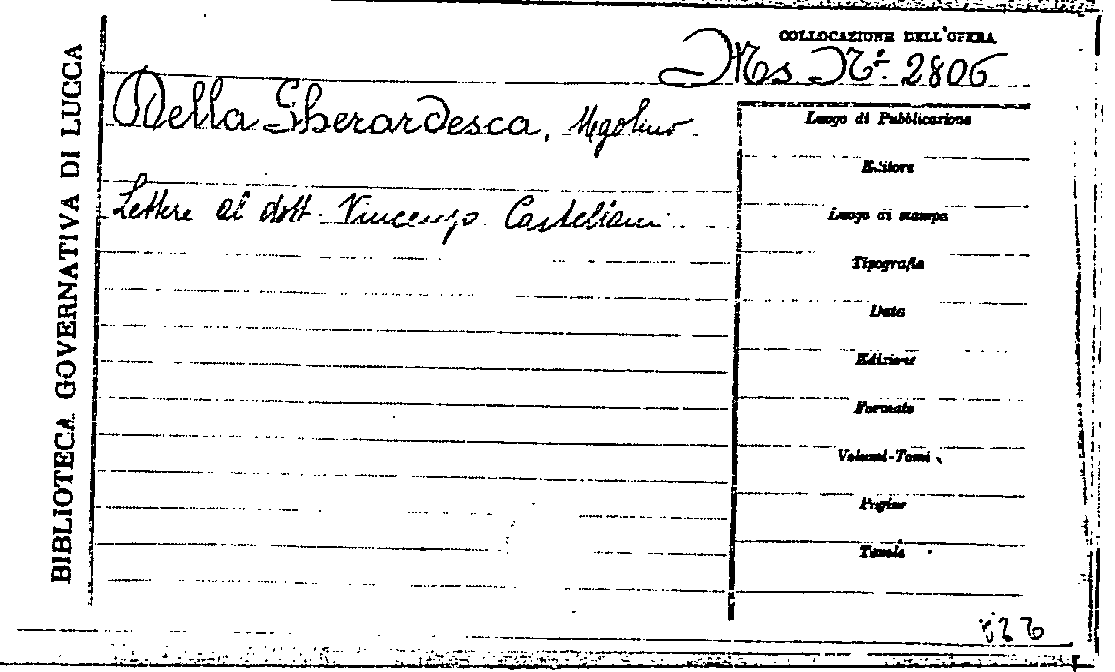 BIBLIOTECA GOVERNATIVA DI LUCCA
COLLOCAZIONE DELL'OPERA
Ms. N.º 2806
Della Gherardesca, Ugolino
Lettere al dott. Vincenzo Casteliani
Luogo di Pubblicazione
Editore
Luogo di stampa
Tipografia
Data
Edizione
Formato
Volumi-Tomi
Pagine
Tavole